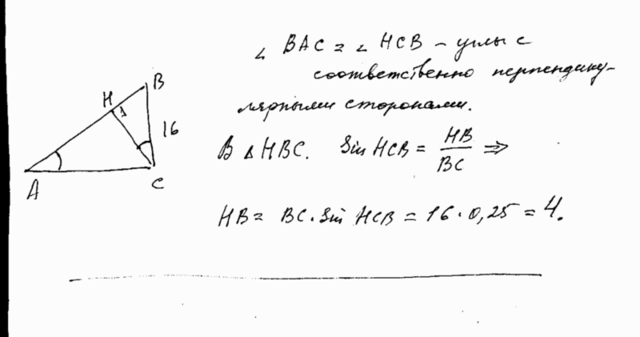 ∠ BAC = ∠ HCB – углы с
соответственно перпендику-
лярными сторонами.
B
H
1
16
A
C
В △ HBC. Sin HCB = HB/BC ⇒
HB = BC · Sin HCB = 16 · 0,25 = 4.